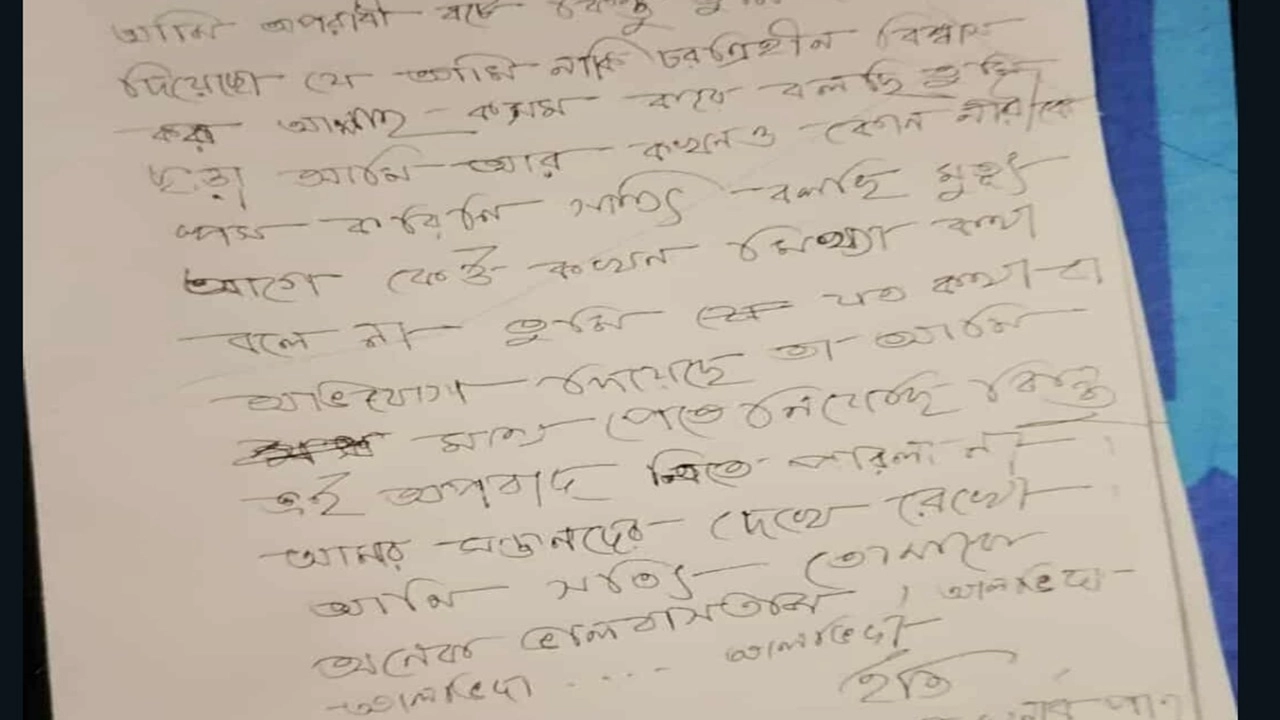 আমি অপরাধী বটে কিন্তু
দিয়েছো যে আমি নাকি চরিত্রহীন বিশ্বাস
কর আল্লাহ কসম করে বলছি তুমি
ছাড়া আমি আর কখনও কোন নারীকে
স্পর্স করিনি সত্যি বলছি মৃত্যু
আগে কেউ কখন মিথ্যা কথা
বলে না তুমি যত কথা বা
অভিযোগ দিয়েছে তা আমি
মাথা পেতে নিয়েছি কিন্তু
এই অপবাদ নিতে পারিলা না
আমার সন্তানদের দেখে রেখো
আমি সত্যি তোমাকে
অনেক ভালবাসতাম । আলবিদা
আলবিদা .... আলবিদা
ইতি